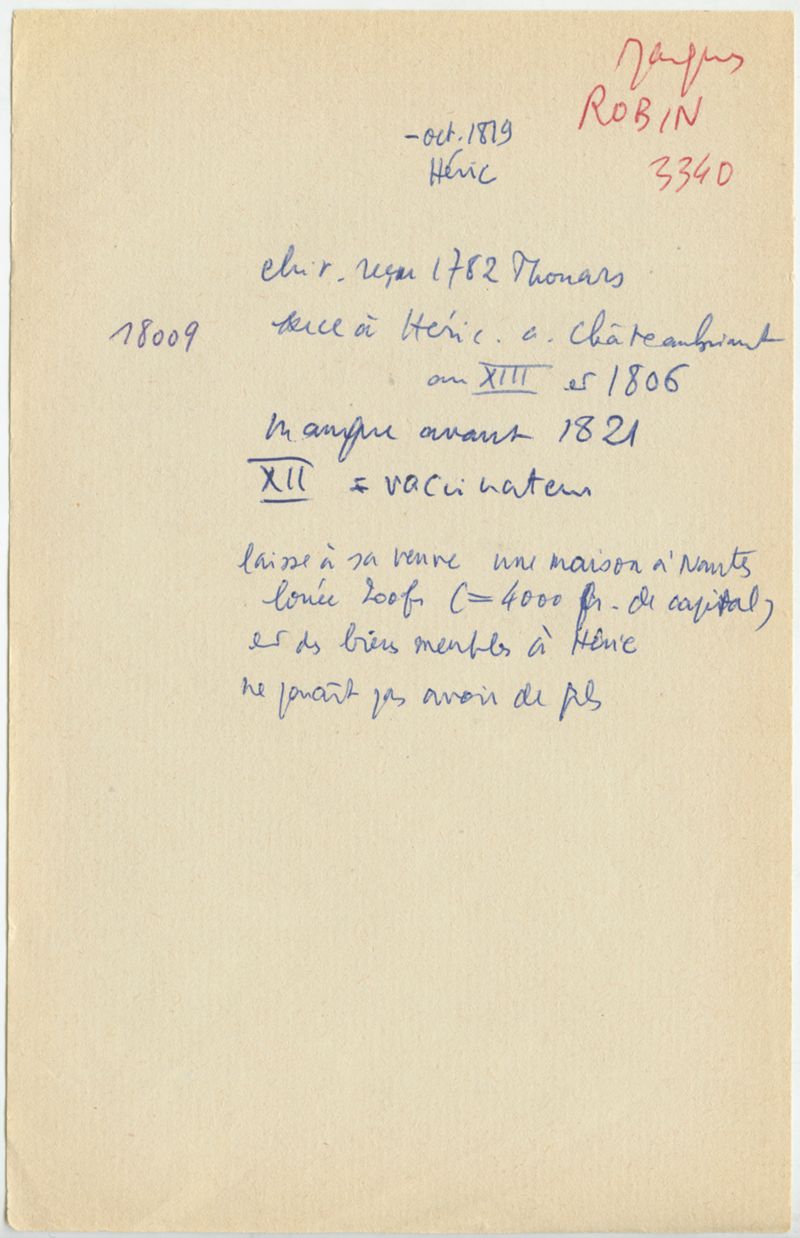 Jacques
ROBIN
3340
- oct. 1819
Héric
chir. reçu 1782 Thouars
18009
à Héric. a. Châteaubriant
an XIII et 1806
manque avant 1821
XII = vaccinateur
laisse à sa veuve une maison à Nantes
louée 200 fr (= 4000 fr. de capital)
et des biens meubles à Héric
ne paraît pas avoir de fils